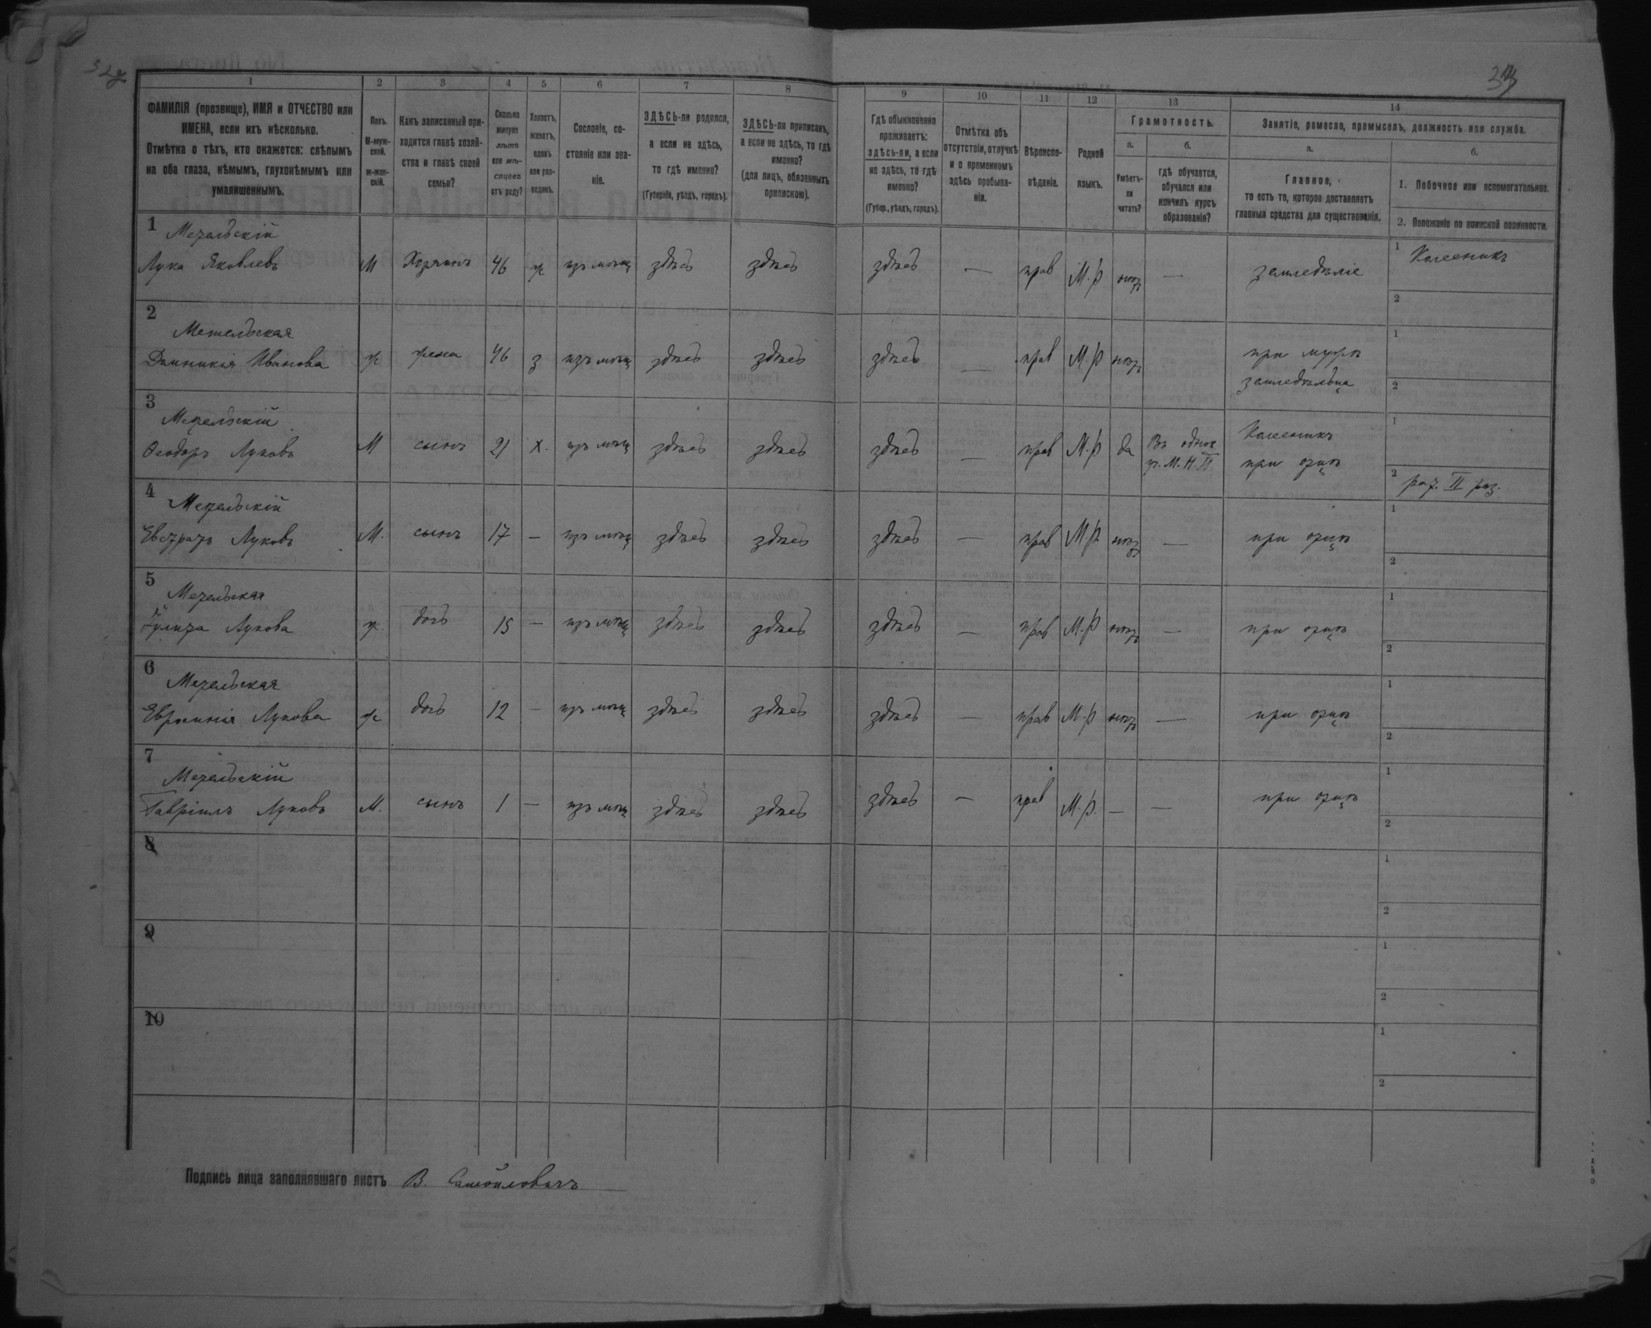 1 2 3 4 5 6 7 8 9 10 11 12 13 14
ФАМИЛІЯ (прозвище), ИМЯ и ОТЧЕСТВО или
ИМЕНА, если ихъ нѣсколько.
Отмѣтка о тѣхъ, кто окажется: слѣпымъ
на оба глаза, нѣмымъ, глухонѣмымъ или
умалишеннымъ.
Полъ.
М-муж-
ской.
ж-жен-
скій.
Какъ записанный при-
ходится главѣ хозяй-
ства и главѣ своей
семьи?
Сколько
минуло
лѣтъ
или мѣ-
сяцевъ
отъ роду?
Холостъ,
женатъ,
вдовъ
или раз-
веденъ.
Сословіе, со-
стояніе или зва-
ніе.
ЗДѢСЬ-ли родился,
а если не здѣсь,
то гдѣ именно?
(Губернія, уѣздъ, городъ).
ЗДѢСЬ-ли приписанъ,
а если не здѣсь, то гдѣ
именно?
(для лицъ, обязанныхъ
припискою).
Гдѣ обыкновенно
проживаетъ:
здѣсь-ли, а если
не здѣсь, то гдѣ
именно?
(Губер., уѣздъ, городъ).
Отмѣтка объ
отсутствіи, отлучкѣ
и о временномъ
здѣсь пребыва-
ніи.
Вѣроиспо-
вѣданіе.
Родной
языкъ.
Грамотность.
а.
Умѣетъ-
ли
читать?
б.
гдѣ обучается,
обучался или
кончилъ курсъ
образованія?
Занятіе, ремесло, промыселъ, должность или служба.
а.
Главное,
то есть то, которое доставляетъ
главныя средства для существованія.
б.
1. Побочное или вспомогательное.
2. Положеніе по воинской повинности.
1 Метельскій
Лука Яковлевъ М Хозяинъ 46 ж изъ мѣщ здѣсь здѣсь здѣсь — прав М.р нѣтъ — земледѣліе 1 Колесникъ
2
2 Метельская
Домникія Иванова ж жена 46 з изъ мѣщ здѣсь здѣсь здѣсь — прав М.р нѣтъ при мужѣ 1
земледѣльца 2
3 Метельскій
Ѳеодоръ Луковъ М сынъ 21 х. изъ мѣщ здѣсь здѣсь здѣсь — прав М.р да Въ однок Колесникъ 1
уч. М.Н.П при отцѣ 2 рат. II раз.
4 Метельскій
Евстратъ Луковъ М. сынъ 17 — изъ мѣщ здѣсь здѣсь здѣсь — прав М.р нѣтъ — при отцѣ 1
2
5 Метельская
Улита Лукова ж. дочь 15 — изъ мѣщ здѣсь здѣсь здѣсь — прав М.р нѣтъ — при отцѣ 1
2
6 Метельская
Лукова ж дочь 12 — изъ мѣщ здѣсь здѣсь здѣсь — прав М.р нѣтъ — при отцѣ 1
2
7 Метельскій
Гавріилъ Луковъ М. сынъ 1 — изъ мѣщ здѣсь здѣсь здѣсь — прав М.р. — — при отцѣ 1
2
8 1
2
9 1
2
10 1
2
Подпись лица заполнявшаго листъ В. Самойловичъ